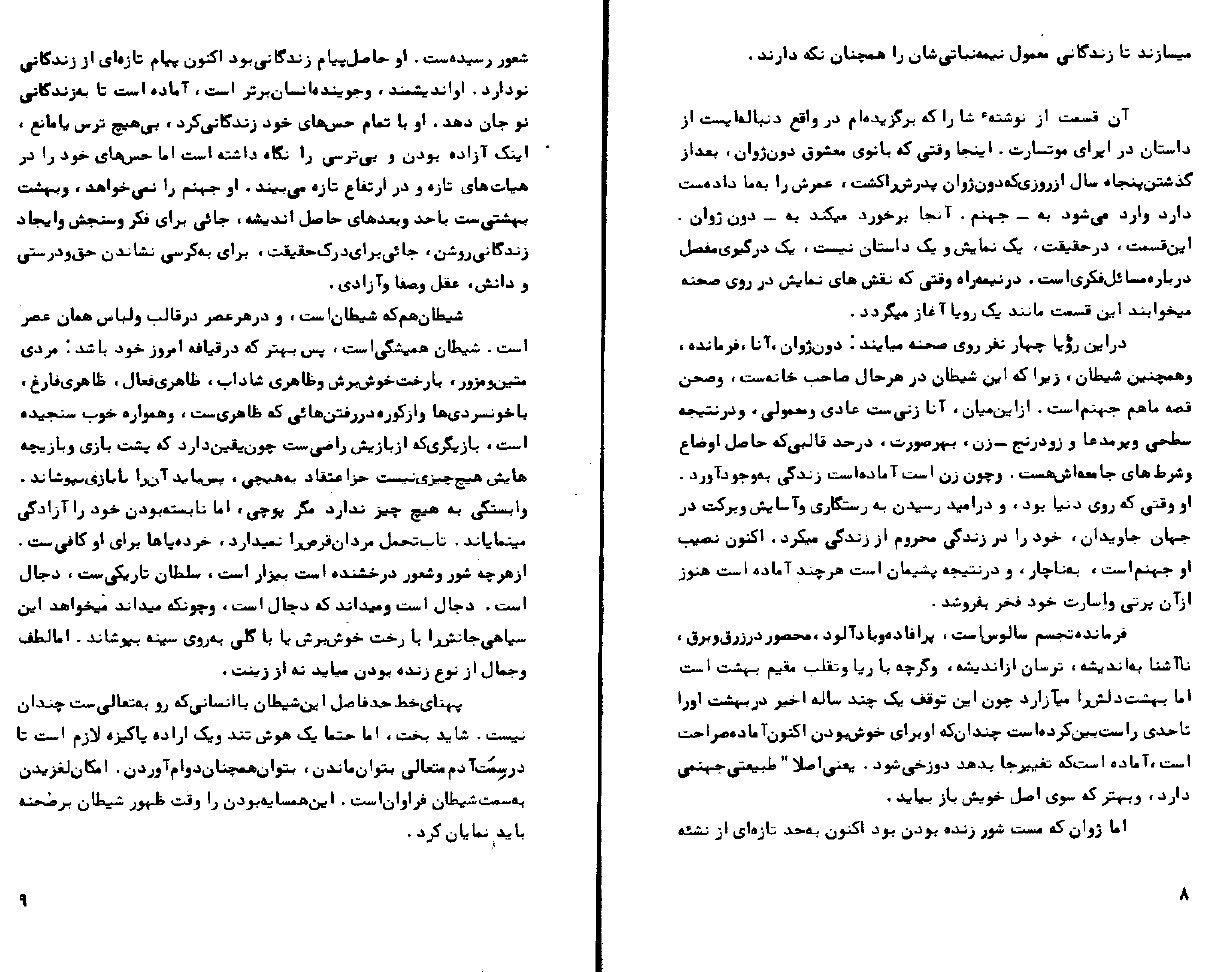 میسازند تا زندگانی معمول نیمه‌نباتی‌شان را همچنان نگه دارند .
آن قسمت از نوشتهء شا را که برگزیده‌ام در واقع دنباله‌ایست از
داستان در اپرای موتسارت . اینجا وقتی که بانوی معشوق دون‌ژوان ، بعداز
گذشتن‌پنجاه سال ازروزی‌که‌دون‌ژوان پدرش‌راکشت ، عمرش را به‌ما داده‌ست
دارد وارد می‌شود به ــ جهنم . آنجا برخورد میکند به ــ دون ژوان .
این‌قسمت ، در‌حقیقت ، یک نمایش‌و یک داستان نیست ، یک درگیری‌مفصل
درباره‌مسائل‌فکری‌است . درنیمه‌راه وقتی که نقش های نمایش در روی صحنه
میخوابند این قسمت مانند یک رویا آغاز میگردد .
دراین رؤیا چهار نفر روی صحنه میایند : دون‌ژوان ،آنا ،فرمانده ،
وهمچنین شیطان ، زیرا که این شیطان در هرحال صاحب خانه‌ست ، وصحن
قصه ماهم جهنم‌است . ازاین‌میان ، آنا زنی‌ست عادی ومعمولی ، ودرنتیجه
سطحی وپرمدعا و زودرنج ــزن ، بهرصورت ، درحد قالبی‌که حاصل اوضاع
وشرط های جامعه‌اش‌هست . وچون زن است آماده‌است زندگی به‌وجودآورد .
او وقتی که روی دنیا بود ، و درامید رسیدن به رستگاری وآسایش وبرکت در
جهان جاویدان ، خود را در زندگی محروم از زندگی میکرد . اکنون نصیب
او جهنم‌است ، به‌ناچار ، و درنتیجه پشیمان است هرچند آماده است هنوز
ازآن پرتی واسارت خود فخر بفروشد .
فرمانده‌تجسم سالوس‌است ، پرافاده‌وبادآلود ، محصور درزرق‌وبرق ،
ناآشنا به‌اندیشه ، ترسان ازاندیشه ، وگرچه با ریا وتقلب مقیم بهشت است
اما بهشت‌دلش‌را میآزارد چون این توقف یک چند ساله اخیر دربهشت اورا
تاحدی راست‌بین‌کرده‌است چندان‌که اوبرای خوش‌بودن اکنون‌آماده‌صراحت
است ،آماده است‌که تغییرجا بدهد دوزخی‌شود . یعنی‌اصلا" طبیعتی‌جهنمی
دارد ، وبهتر که سوی اصل خویش باز بیاید .
اما ژوان که مست شور زنده بودن بود اکنون به‌حد تازه‌ای از نشئه
۸
شعور رسیده‌ست . او حاصل‌پیام زندگانی‌بود اکنون پیام تازه‌ای از زندگانی
نودارد . اواندیشمند ، وجوینده‌انسان‌برتر است ، آماده است تا به‌زندگانی
نو جان دهد . او با تمام حس‌های خود زندگانی‌کرد ، بی‌هیچ ترس یامانع ،
اینک آزاده بودن و بی‌ترسی را نگاه داشته است اما حس‌های خود را در
هیات‌های تازه و در ارتفاع تازه می‌بیند . او جهنم را نمی‌خواهد ، وبهشت
بهشتی‌ست باحد وبعدهای حاصل اندیشه ، جائی برای فکر وسنجش وایجاد
زندگانی‌روشن ، جائی‌برای‌درک‌حقیقت ، برای به‌کرسی نشاندن حق‌ودرستی
و دانش ، عقل وصفا وآزادی .
شیطان‌هم‌که شیطان‌است ، و درهرعصر درقالب ولباس همان عصر
است . شیطان همیشگی‌است ، پس بهتر که درقیافه امروز خود باشد : مردی
متین‌ومزور ، بارخت‌خوش‌برش وظاهری شاداب ، ظاهری‌فعال ، ظاهری‌فارغ ،
باخونسردی‌ها وازکوره‌دررفتن‌هائی که ظاهری‌ست ، وهمواره خوب سنجیده
است ، بازیگری‌که ازبازیش راضی‌ست چون‌یقین‌دارد که پشت بازی وبازیچه
هایش هیچ‌چیزی‌نیست جزاعتقاد به‌هیچی ، پس‌باید آن‌را بابازی‌بپوشاند .
وابستگی به هیچ چیز ندارد مگر پوچی ، اما نابسته‌بودن خود را آزادگی
مینمایاند . تاب‌تحمل مردان‌قرص‌را نمیدارد ، خرده‌پاها برای او کافی‌ست .
ازهرچه شور وشعور درخشنده است بیزار است ، سلطان تاریکی‌ست ، دجال
است . دجال است ومیداند که دجال است ، وچونکه میداند میخواهد این
سیاهی‌جانش‌را با رخت خوش‌برش یا با گلی به‌روی سینه بپوشاند . امالطف
وجمال از نوع زنده بودن میاید نه از زینت .
پهنای‌خط حدفاصل این‌شیطان باانسانی‌که رو به‌تعالی‌ست چندان
نیست . شاید بخت ، اما حتما یک هوش تند ویک اراده پاکیزه لازم است تا
درسمت‌آدم‌متعالی بتوان‌ماندن ، بتوان‌همچنان‌دوام‌آوردن . امکان‌لغزیدن
به‌سمت‌شیطان فراوان‌است . این‌همسایه‌بودن را وقت ظهور شیطان برصحنه
باید نمایان کرد .
۹